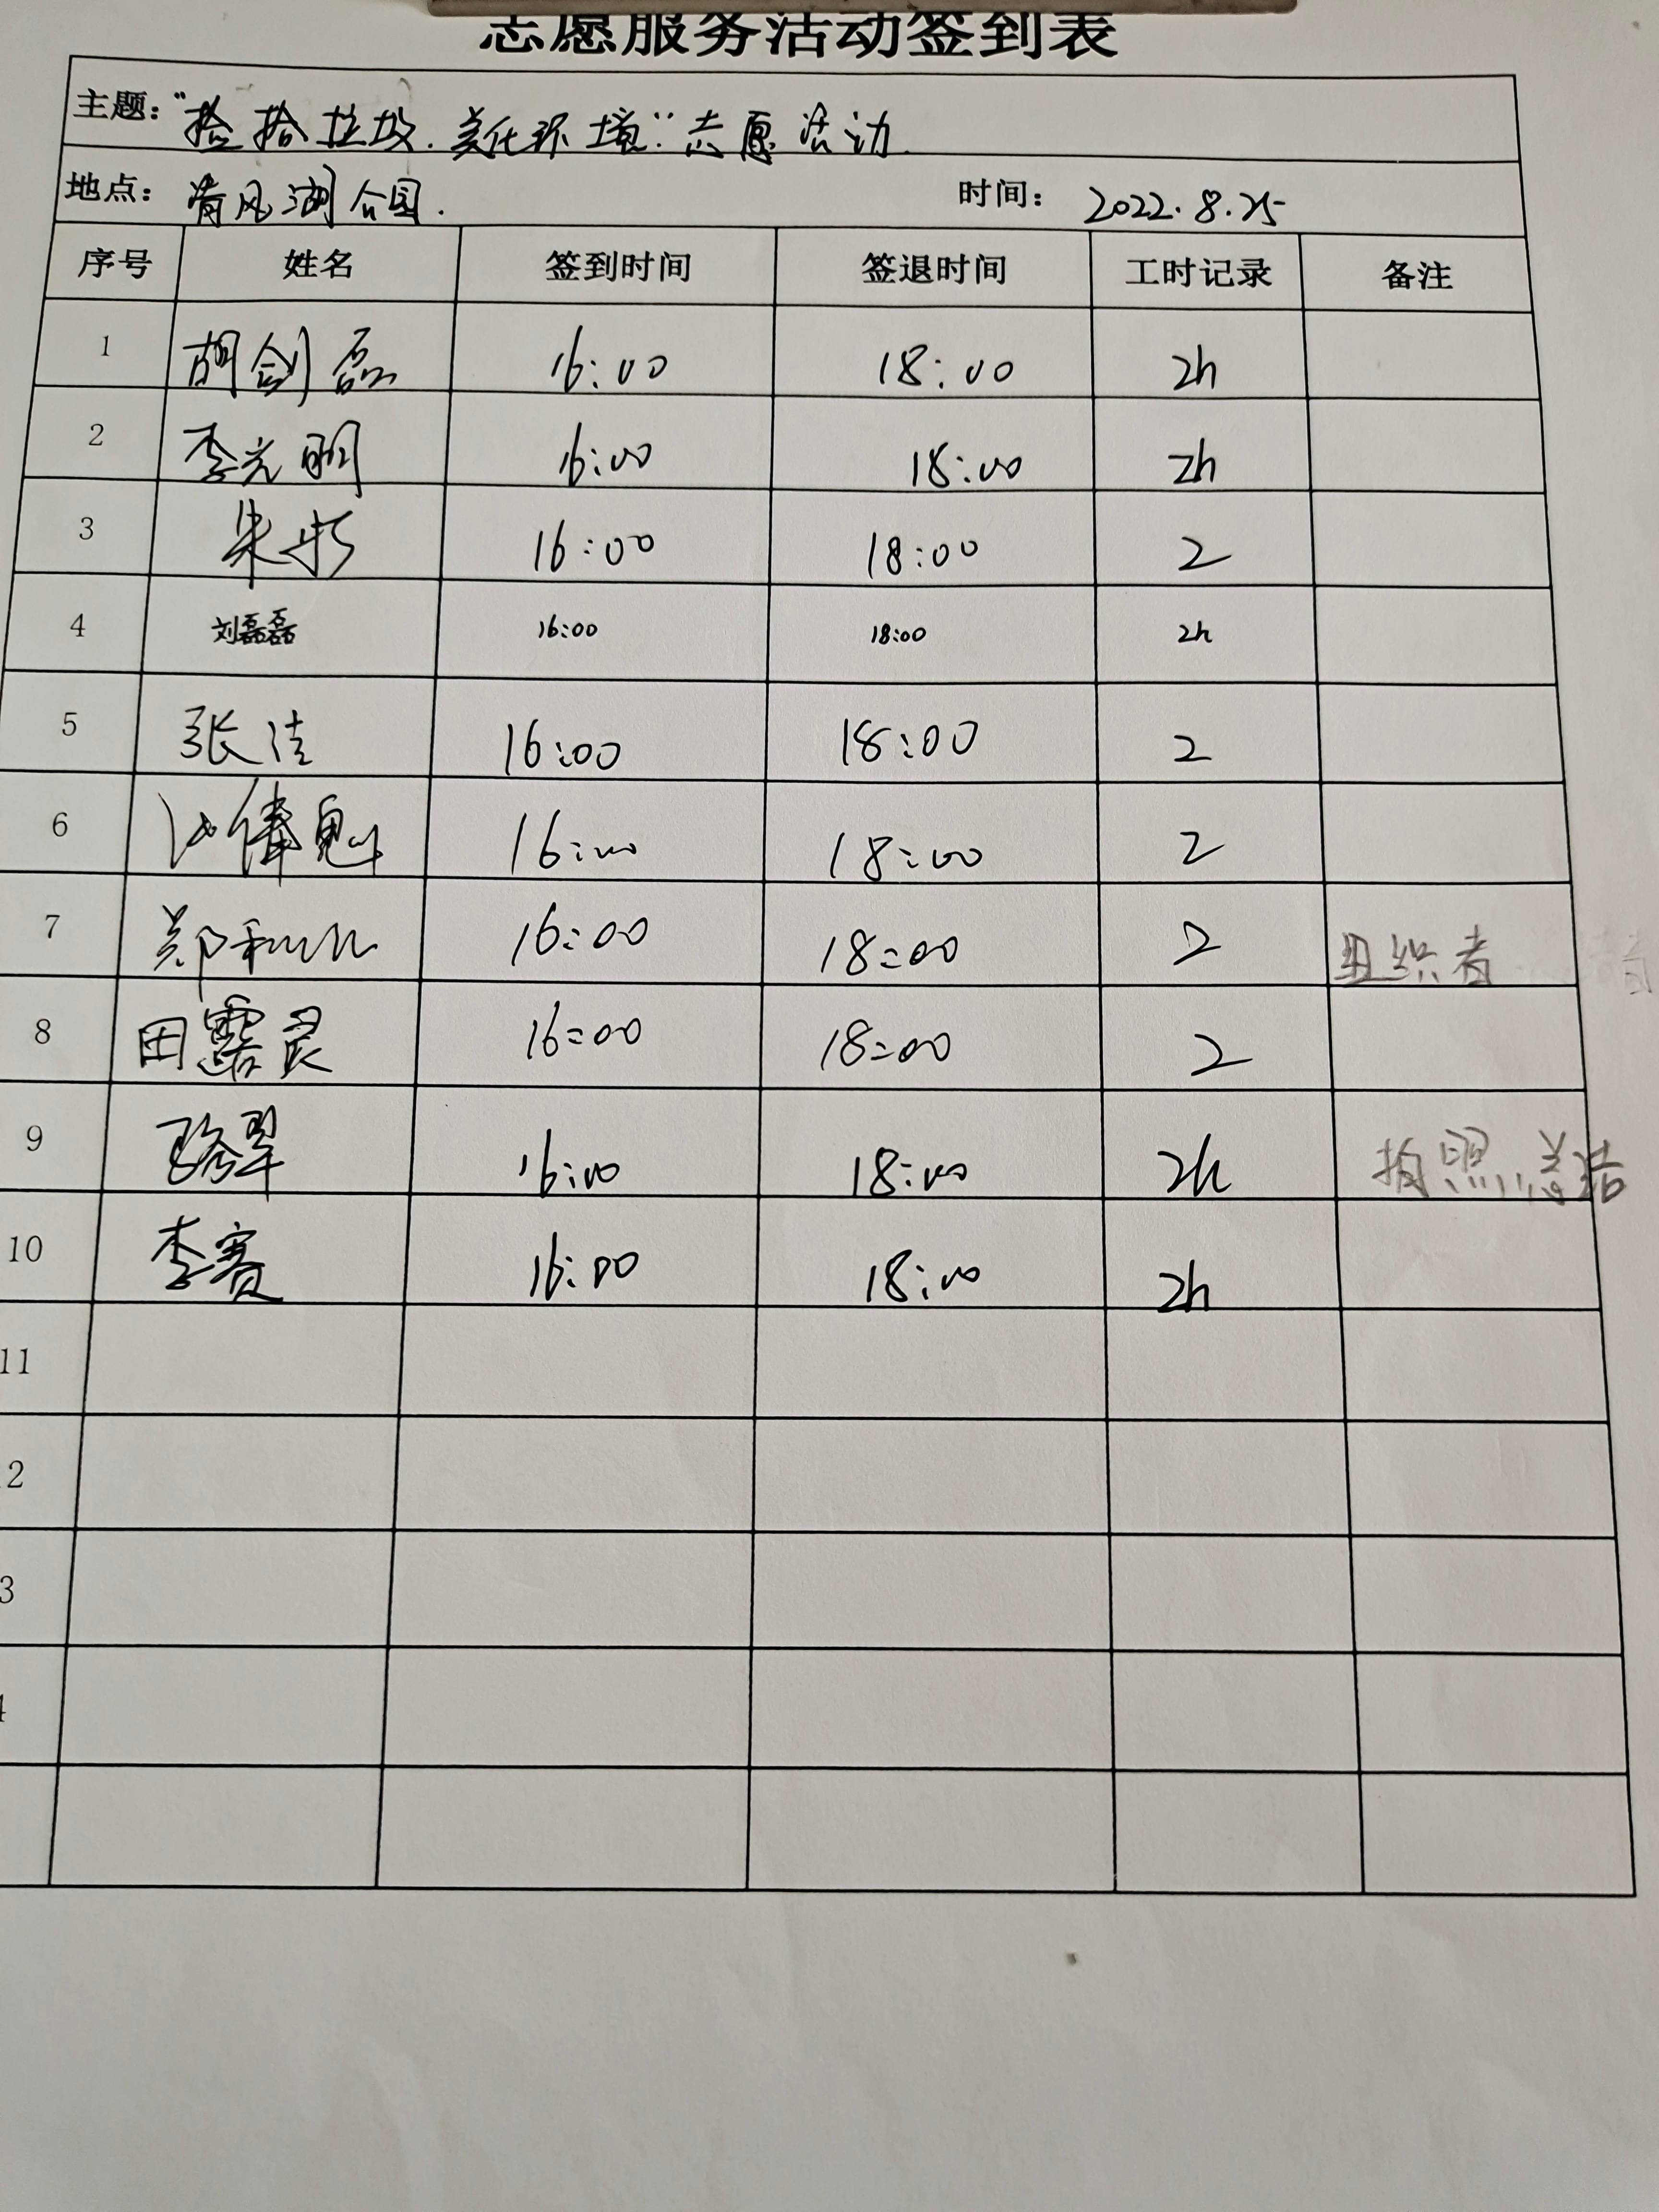 志愿服务活动签到表
主题：“捡拾垃圾.美化环境”志愿活动
地点：清风湖公园. 时间：2022.8.25
序号 姓名 签到时间 签退时间 工时记录 备注
1 胡剑磊 16:00 18:00 2h
2 李光明 16:00 18:00 2h
3 朱彬 16:00 18:00 2
4 刘磊磊 16:00 18:00 2h
5 张洁 16:00 18:00 2
6 16:00 18:00 2
7 郑 16:00 18:00 2 组织者
8 田露灵 16:00 18:00 2
9 骆翠 16:00 18:00 2h 拍照,总结
10 李赛 16:00 18:00 2h
11
2
3
4